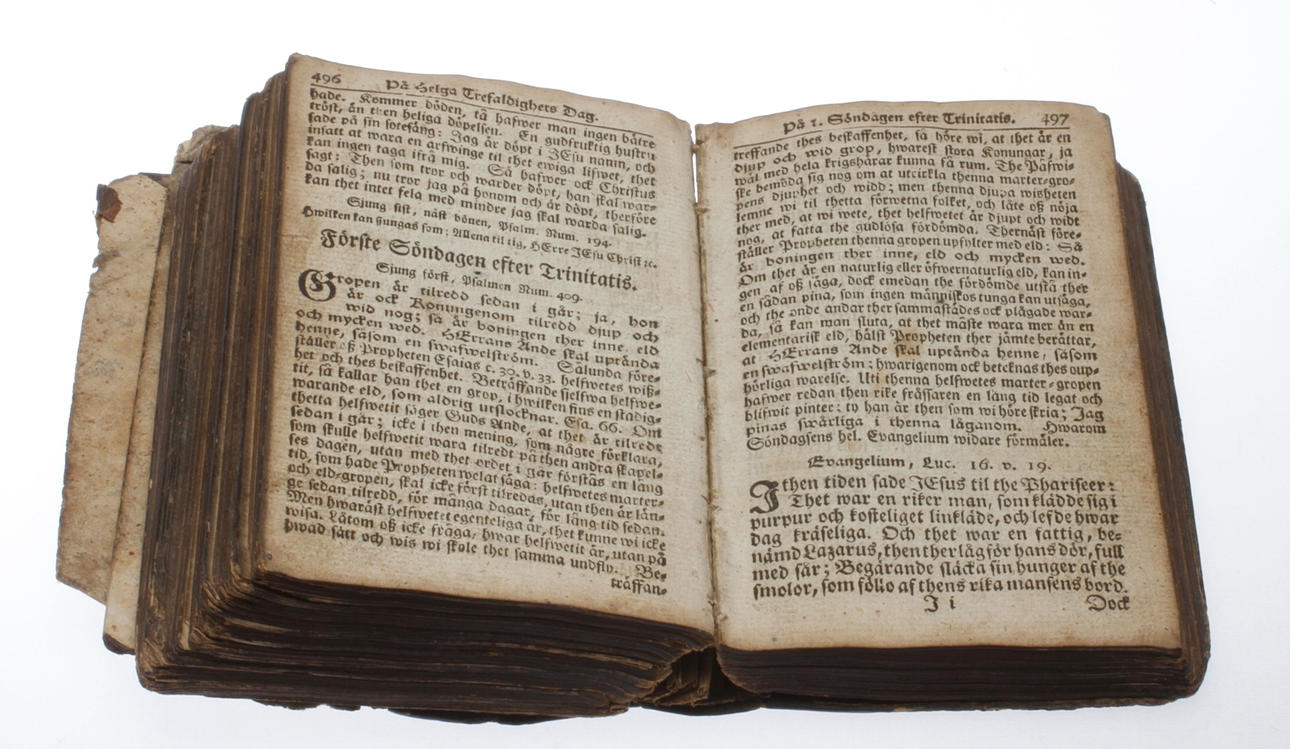 496 På Helga Trefaldighets Dag.
hade. Kommer döden, tå hafwer man ingen bätre
tröst, än then heliga döpelsen. En gudfruktig hustru
sade på sin sotesäng: Jag är döpt i JEsu namn, och
insatt at wara en arfwinge til thet ewiga lifwet, thet
kan ingen taga ifrå mig. Så hafwer ock Christus
sagt: Then som tror och warder döpt, han skal war-
da salig; nu tror jag på honom och är döpt, therföre
kan thet intet fela med mindre jag skal warda salig.
Sjung sist, näst bönen, Psalm. Num. 194.
Hwilken kan siungas som: Allena til tig, HErre JEsu Christ ꝛc.
Förste Söndagen efter Trinitatis.
Sjung först, Psalmen Num. 409.
Gropen är tilredd sedan i går; ja, hon
är ock Konungenom tilredd djup och
wid nog; så är boningen ther inne, eld
och mycken wed. HErrans Ande skal uptända
henne, såsom en swafwelström. Sålunda före-
ställer oß Propheten Esaias c. 30. v. 33. helfwetes wiß-
het och thes beskaffenhet. Beträffande sjelfwa helfwe-
tit, så kallar han thet en grop, i hwilken fins en stadig-
warande eld, som aldrig utslocknar. Esa. 66. Om
thetta helfwetit säger Guds Ande, at thet är tilredt
sedan i går; icke i then mening, som någre förklara,
som skulle helfwetit wara tilredt på then andra skapel-
ses dagen, utan med thet ordet i går förstås en lång
tid, som hade Propheten welat säga: helfwetes marter-
och eld-gropen, skal icke först tilredas, utan then är län-
ge sedan tilredd, för många dagar, för lång tid sedan.
Men hwaräst helfwetet egenteliga är, thet kunne wi icke
wisa. Låtom oß icke fråga, hwar helfwetit är, utan på
hwad sätt och wis wi skole thet samma undfly. Be-
träffan-
På 1. Söndagen efter Trinitatis. 497
treffande thes beskaffenhet, så höre wi, at thet är en
djup och wid grop, hwarest stora Konungar, ja
wäl med hela krigshärar kunna få rum. The Påfwis-
ke bemöda sig nog om at utcirkla thenna marter-gro-
pens djuphet och widd; men thenna djupa wisheten
lemne wi til thetta förwetna folket, och låte oß nöja
ther med, at wi wete, thet helfwetet är djupt och widt
nog, at fatta the gudlösa fördömda. Thernäst före-
ställer Propheten thenna gropen upfylter med eld: Så
är boningen ther inne, eld och mycken wed.
Om thet är en naturlig eller öfwernaturlig eld, kan in-
gen af oß säga, dock emedan the fördömde utstå ther
en sådan pina, som ingen människos tunga kan utsäga,
och the onde andar ther sammastädes ock plågade war-
da, så kan man sluta, at thet måste wara mer än en
elementarisk eld, hälst Propheten ther jämte berättar,
at HErrans Ande skal uptända henne, såsom
en swafwelström; hwarigenom ock betecknas thes oup-
hörliga warelse. Uti thenna helfwetes marter-gropen
hafwer redan then rike fråssaren en lång tid legat och
blifwit pinter: ty han är then som wi höre skria; Jag
pinas swårliga i thenna låganom. Hwarom
Söndagsens hel. Evangelium widare förmäler.
Evangelium, Luc. 16. v. 19.
I then tiden sade JEsus til the Phariseer:
Thet war en riker man, som klädde sig i
purpur och kosteliget linkläde, och lefde hwar
dag kräseliga. Och thet war en fattig, be-
nämd Lazarus, then ther låg för hans dör, full
med sår; Begärande släcka sin hunger af the
smolor, som föllo af thens rika mansens bord.
I i Dock